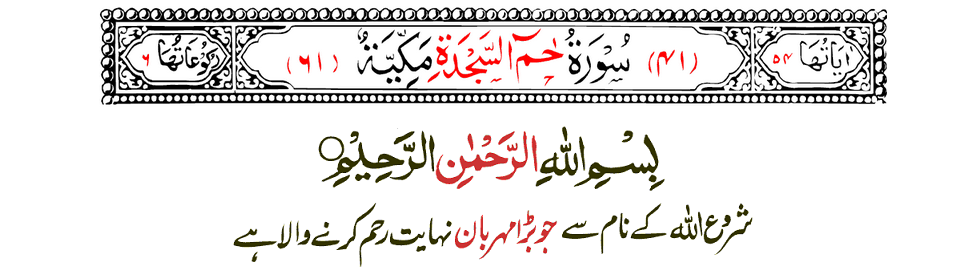 اٰیَاتُهَا ۵۴ (۴۱) سُوْرَةُ حٰمٓ السَّجْدَةِ مَكِّیَّةٌ (۶۱) رُكُوْعَاتُهَا ۶
بِسْمِ اللّٰهِ الرَّحْمٰنِ الرَّحِیْمِ○
شروع اللہ کے نام سے جو بڑا مہربان نہایت رحم کرنے والا ہے